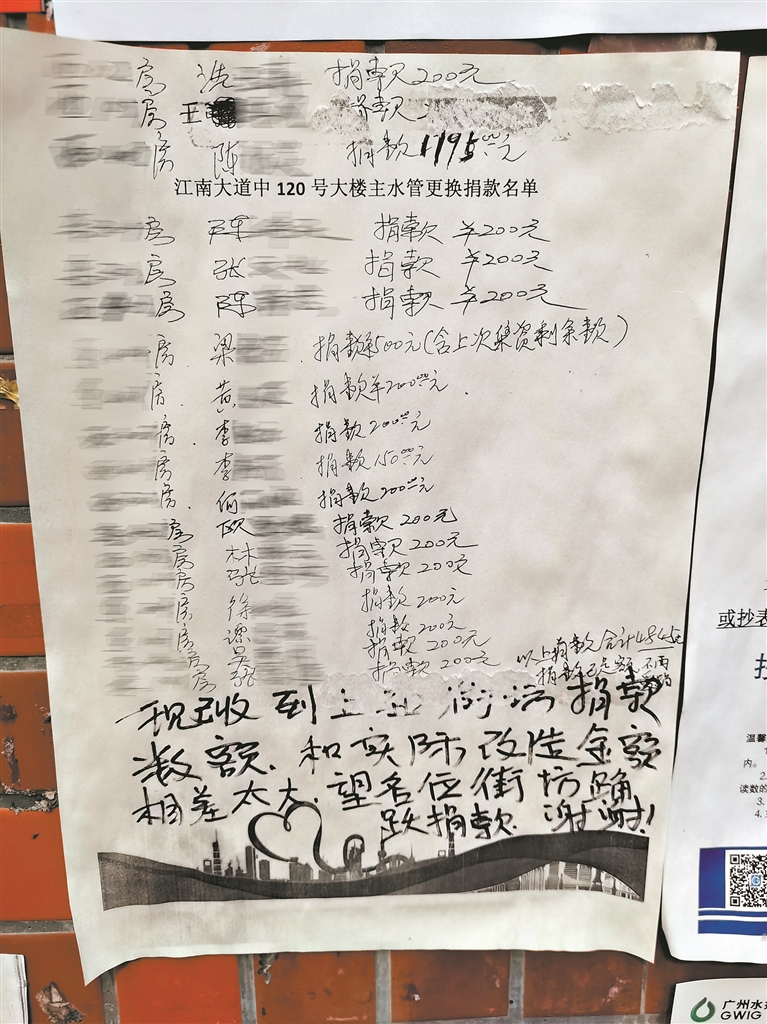 房 冼 捐款200元
房 王 捐款
房 陈 捐款1195.00元
江南大道中120号大楼主水管更换捐款名单
房 陈 捐款 ¥200元
房 张 捐款 ¥200元
房 陈 捐款 ¥200元
房 梁 捐款¥500元(含上次集资剩余款)
房 黄 捐款¥200.00元
房 李 捐款 200.00元
房 李 捐款 150.00元
房 何 捐款 200.00元
房 欧 捐款 200元
房 林 捐款 200元
房 张 捐款 200元
房 徐 捐款 200元
房 谭 捐款 200元
房 吴 捐款 200元
房 捐款 200元
以上捐款合计4845元
捐款已足额,不再
现已收到 街坊捐款
数额,和实际改造金额
相差太大,望各位街坊踊
跃捐款,谢谢!
或抄表
温馨
内。
2.
读数的
3.
4.
广州水
GWIG